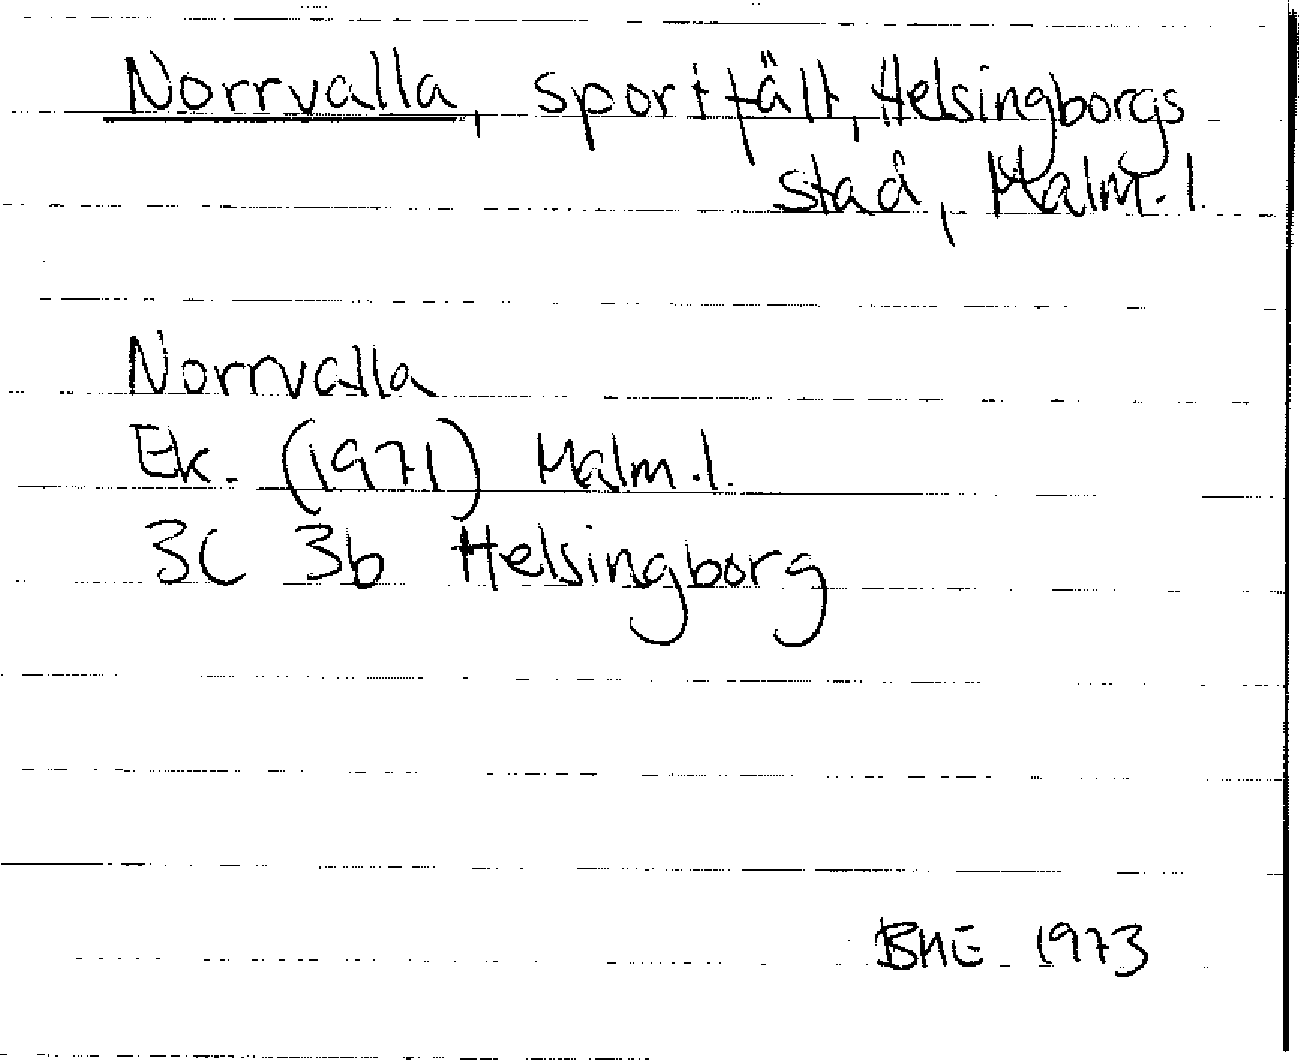 Norrvalla, sportfält, Helsingborgs
stad, Malm.l.
Norrvalla
Ek. (1971) Malm.l.
3C 3b Helsingborg
BHE 1973